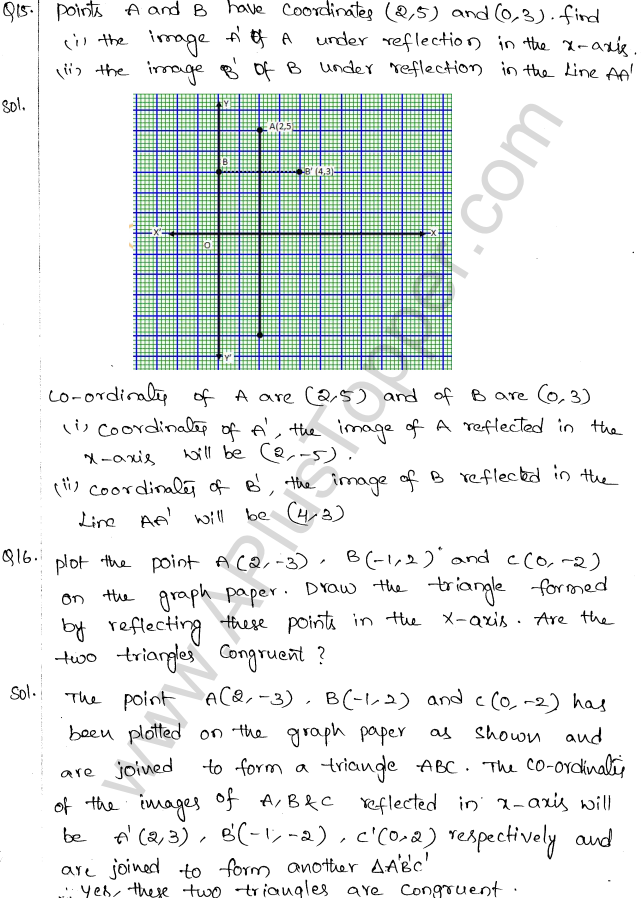 Q15. points A and B have coordinates (2,5) and (0,3). find
(i) the image A' of A under reflection in the x-axis.
(ii) the image B' of B under reflection in the Line AA'
Sol.
Y
A(2,5
B
B' (4,3)
X'
X
O
Y'
co-ordinates of A are (2,5) and of B are (0,3)
(i) coordinates of A', the image of A reflected in the
x-axis will be (2,-5).
(ii) coordinates of B', the image of B reflected in the
Line AA' will be (4,3)
Q16. plot the point A(2,-3), B(-1,2) and C(0,-2)
on the graph paper. Draw the triangle formed
by reflecting these points in the X-axis. Are the
two triangles Congruent?
Sol. The point A(2,-3), B(-1,2) and C(0,-2) has
been plotted on the graph paper as shown and
are joined to form a triangle ABC. The co-ordinates
of the images of A,B & C reflected in x-axis will
be A'(2,3), B'(-1,-2), C'(0,2) respectively and
are joined to form another ΔA'B'C'
∴ Yes, these two triangles are congruent.
www.APlusTopper.com